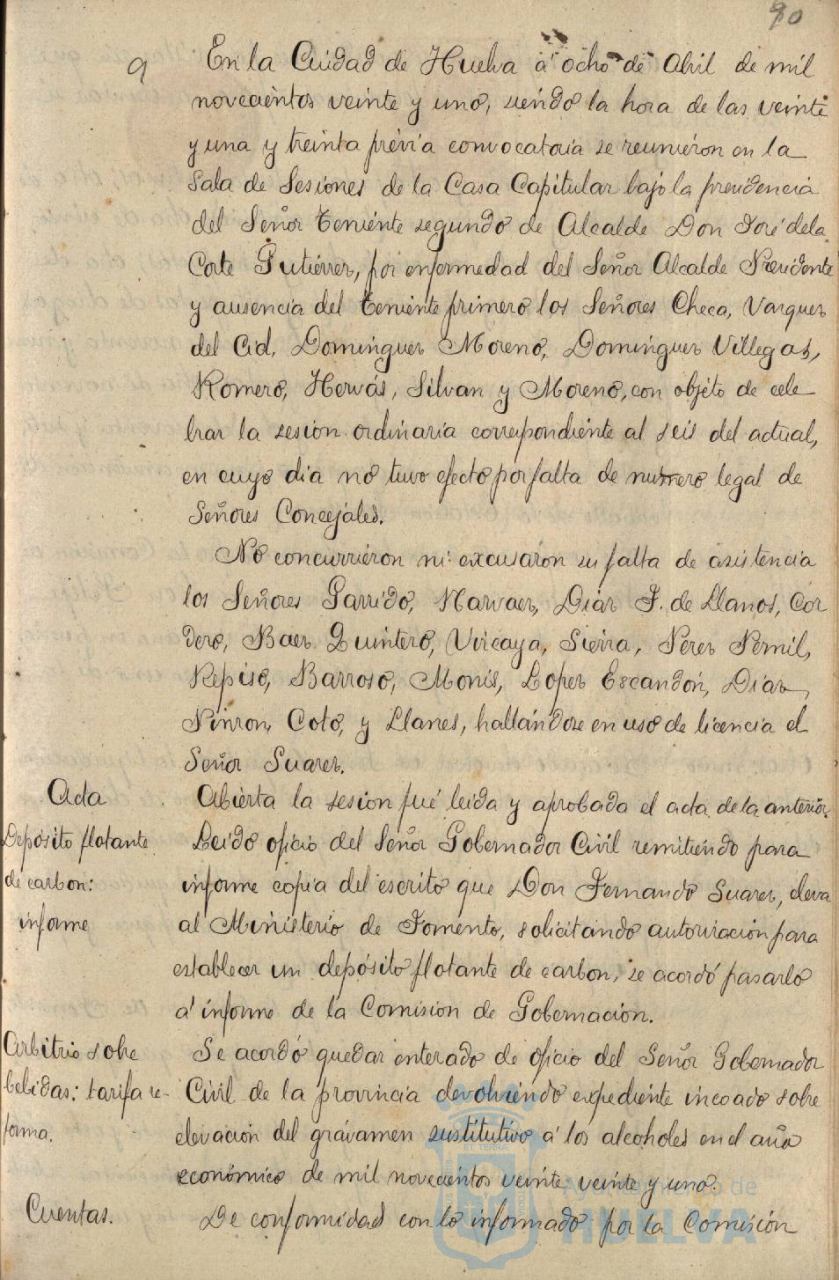 90
9
En la Cuidad de Huelva a ocho de Abril de mil
novecientos veinte y uno, siendo la hora de las veinte
y una y treinta prévia convocatoria se reunieron en la
Sala de Sesiones de la Casa Capitular bajo la presidencia
del Señor Teniente segundo de Alcalde Don José de la
Corte Gutiérrez, por enfermedad del Señor Alcalde Presidente
y ausencia del Teniente primero los Señores Checa, Vazquez
del Cid, Dominguez Moreno, Dominguez Villegas,
Romero, Hervás, Silvan y Moreno, con objeto de cele
brar la sesion ordinaria correspondiente al seis del actual,
en cuyo dia no tuvo efecto por falta de numero legal de
Señores Concejales.
No concurrieron ni excusaron su falta de asistencia
los Señores Garrido, Narvaez, Diaz F. de Llanos, Cor
dero, Baez Quintero, Vizcaya, Sierra, Perez Pernil,
Repiso, Barroso, Monís, Lopez Escandón, Diaz,
Pinzon, Coto, y Llanes, hallándose en uso de licencia el
Señor Suarez.
Acta
Abierta la sesion fué leida y aprobada el acta de la anterior.
Depósito flotante
de carbon:
informe
Leido oficio del Señor Gobernador Civil remitiendo para
informe copia del escrito que Don Fernando Suarez, eleva
al Ministerio de Fomento, solicitando autorización para
establecer un depósito flotante de carbon, se acordó pasarlo
a informe de la Comision de Gobernación.
Arbitrio sobre
bebidas: tarifa re-
forma.
Se acordó quedar enterado de oficio del Señor Gobernador
Civil de la provincia devolviendo expediente incoado sobre
elevación del grávamen sustitutivo á los alcoholes en el año
económico de mil novecientos veinte veinte y uno.
Cuentas.
De conformidad con lo informado por la Comisión
Ayuntamiento de
HUELVA